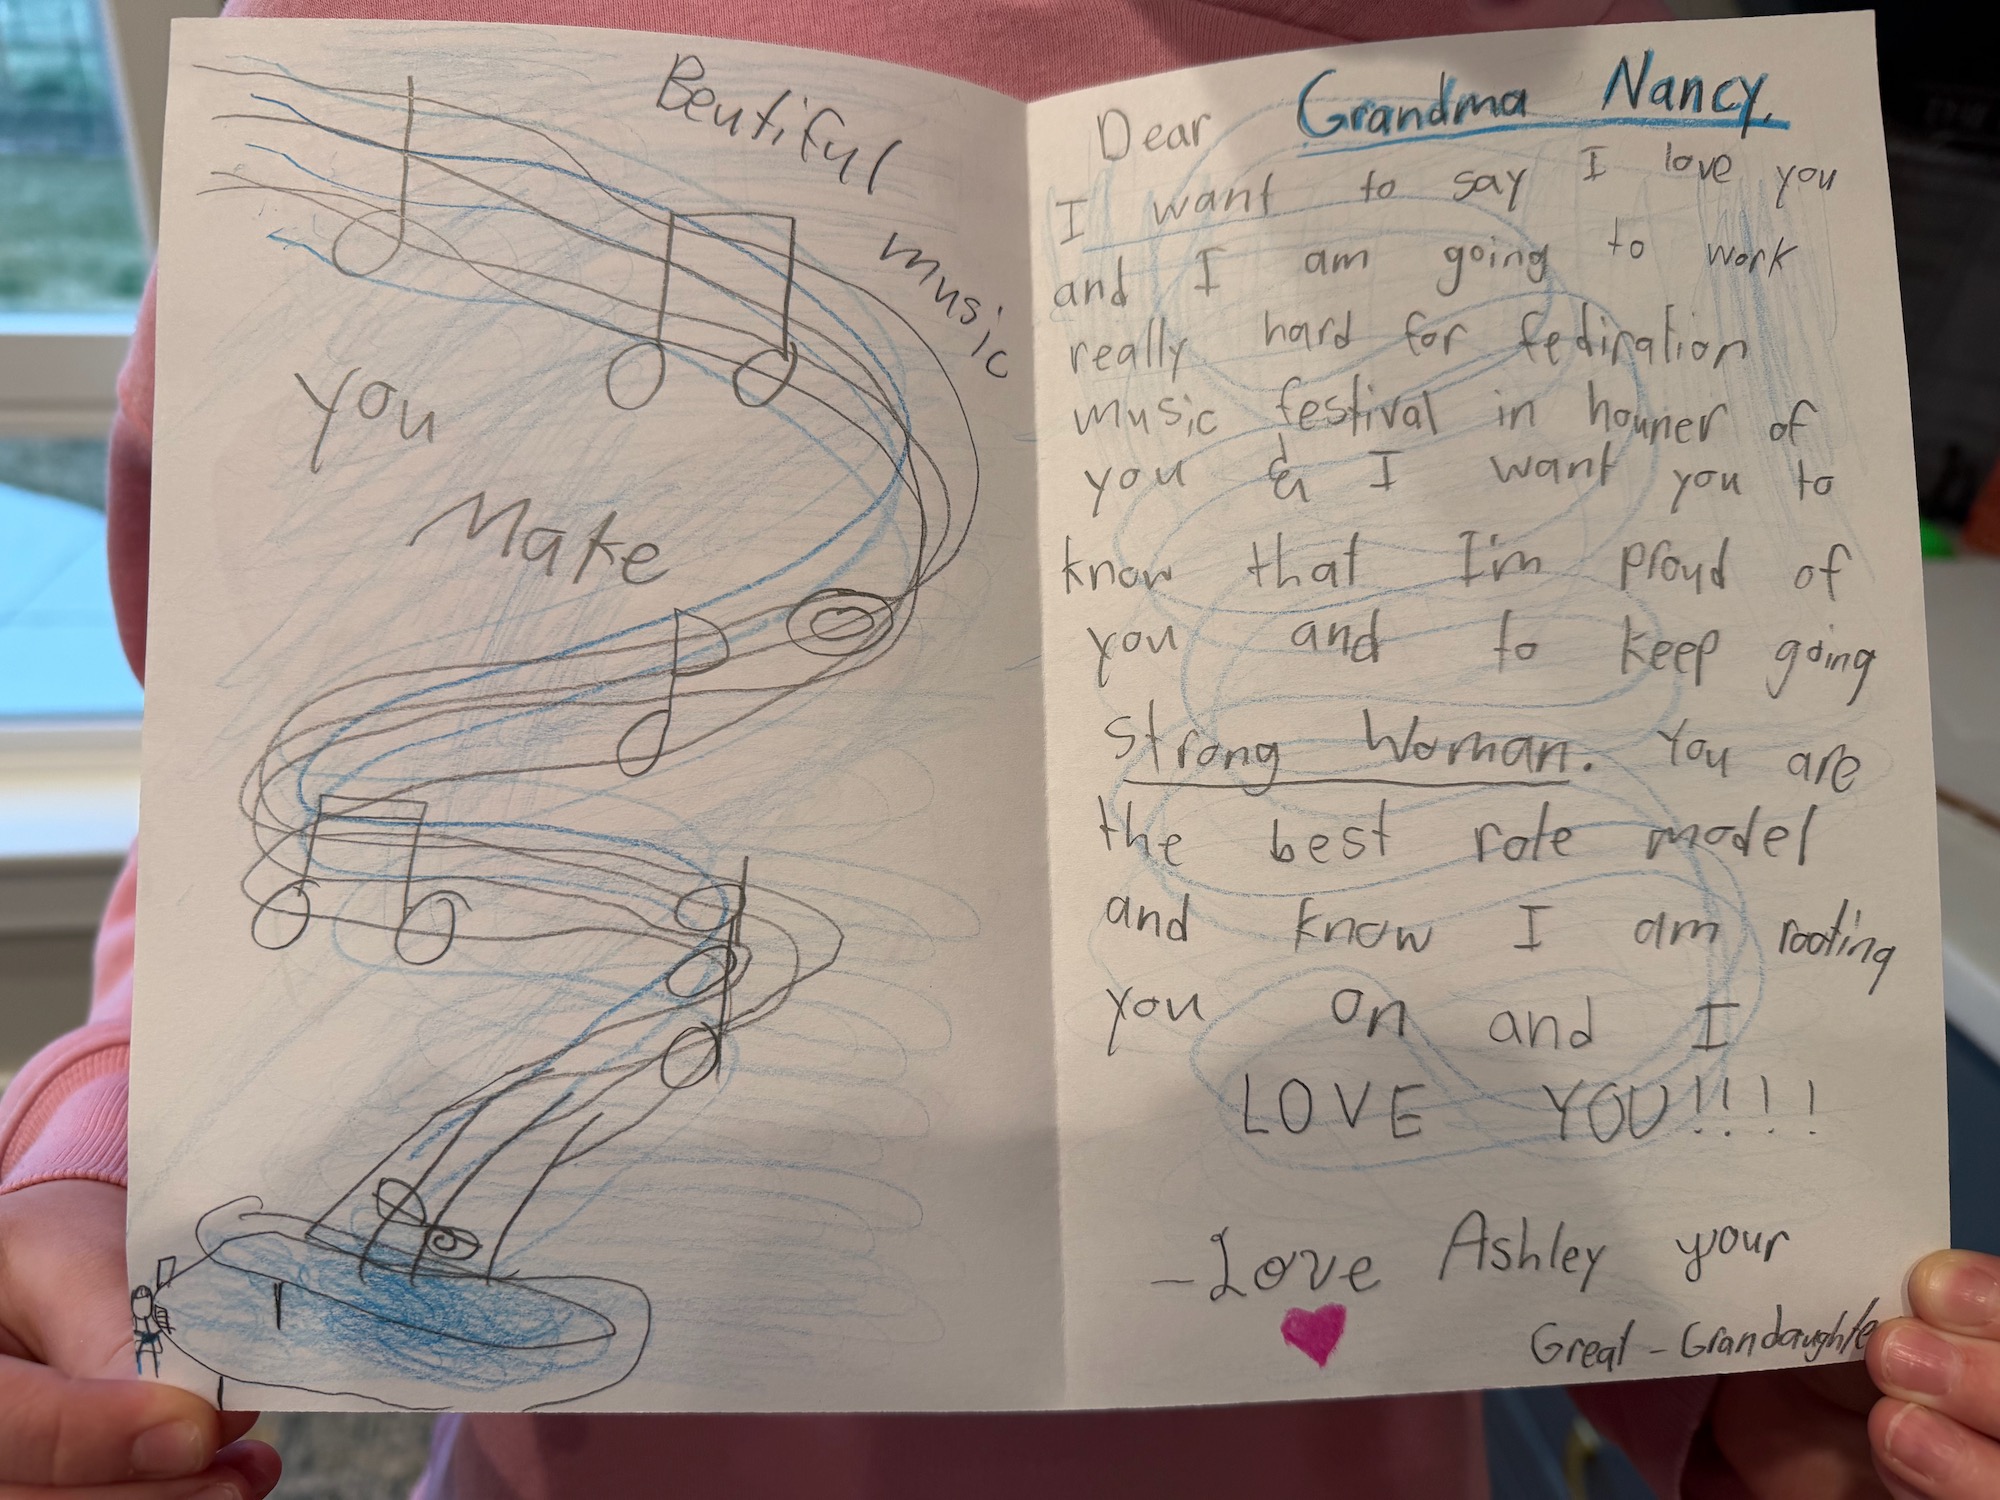 you
Make
Beutiful
music
Dear Grandma Nancy,
I want to say I love you
and I am going to work
really hard for fediration
music festival in houner of
you & I want you to
know that I'm proud of
you and to keep going
strong Woman. You are
the best role model
and know I am rooting
you on and I
LOVE YOU!!!!
- Love Ashley your
Great - Grandaughte